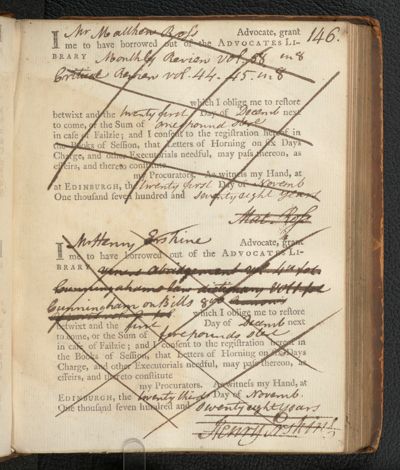 146.
I Mr Matthew Ross Advocate, grant
me to have borrowed out of the ADVOCATES LI-
BRARY Monthly Review vol. 58 in 8
Critical Review vol. 44. 45. in 8
which I oblige me to restore
betwixt and the twenty first Day of Decemb next
to come, or the Sum of one pound Sterl
in case of Failzie; and I consent to the registration hereof in
the Books of Session, that Letters of Horning on six Days
Charge, and other Executorials needful, may pass thereon, as
effeirs, and thereto constitute
my Procurators. As witness my Hand,
at EDINBURGH, the twenty first Day of Novemb
One thousand seven hundred and seventy eight years
Mat. Ross
I Mr Henry Erskine Advocate, grant
me to have borrowed out of the ADVOCATES LI-
BRARY
Cunningham on Bills 8vo
which I oblige me to restore
betwixt and the Day of Decemb next
to come, or the Sum of five pounds sterl
in case of Failzie; and I consent to the registration hereof in
the Books of Session, that Letters of Horning on six Days
Charge, and other Executorials needful, may pass thereon, as
effeirs, and thereto constitute
my Procurators. As witness my Hand, at
EDINBURGH, the twenty third Day of Novemb.
One thousand seven hundred and seventy eight years
Henry Erskine